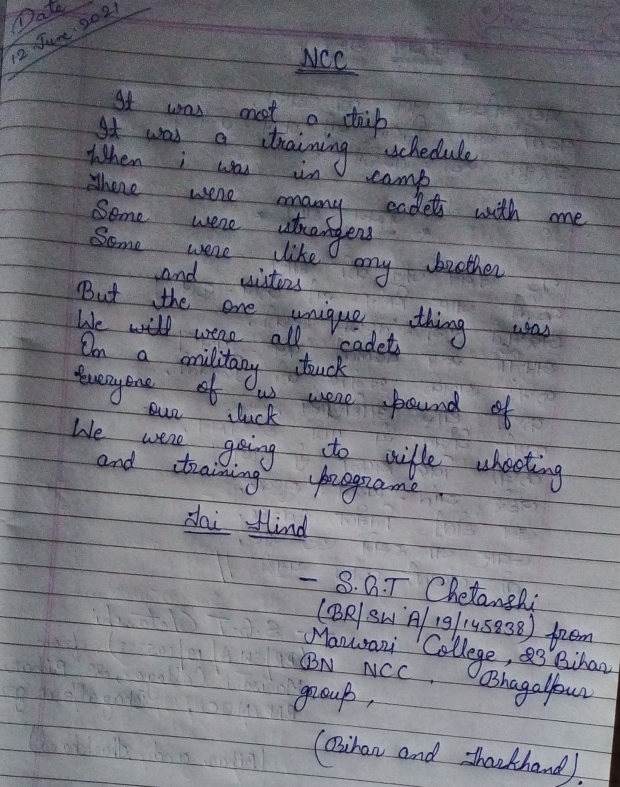 Date
12.June.2021
NCC
It was not a trip
It was a training schedule
When i was in camp
There were many cadets with me
Some were strangers
Some were like my brother
and sisters
But the one unique thing was
We will were all cadets
On a military truck
Everyone of us were pound of
our luck
We were going to rifle shooting
and training programe
Jai Hind
- S.G.T Chetanshi
(BR/SW A/19/145838) from
Marwari College, 23 Bihar
BN NCC, Bhagalpur
group,
(Bihar and Jharkhand).